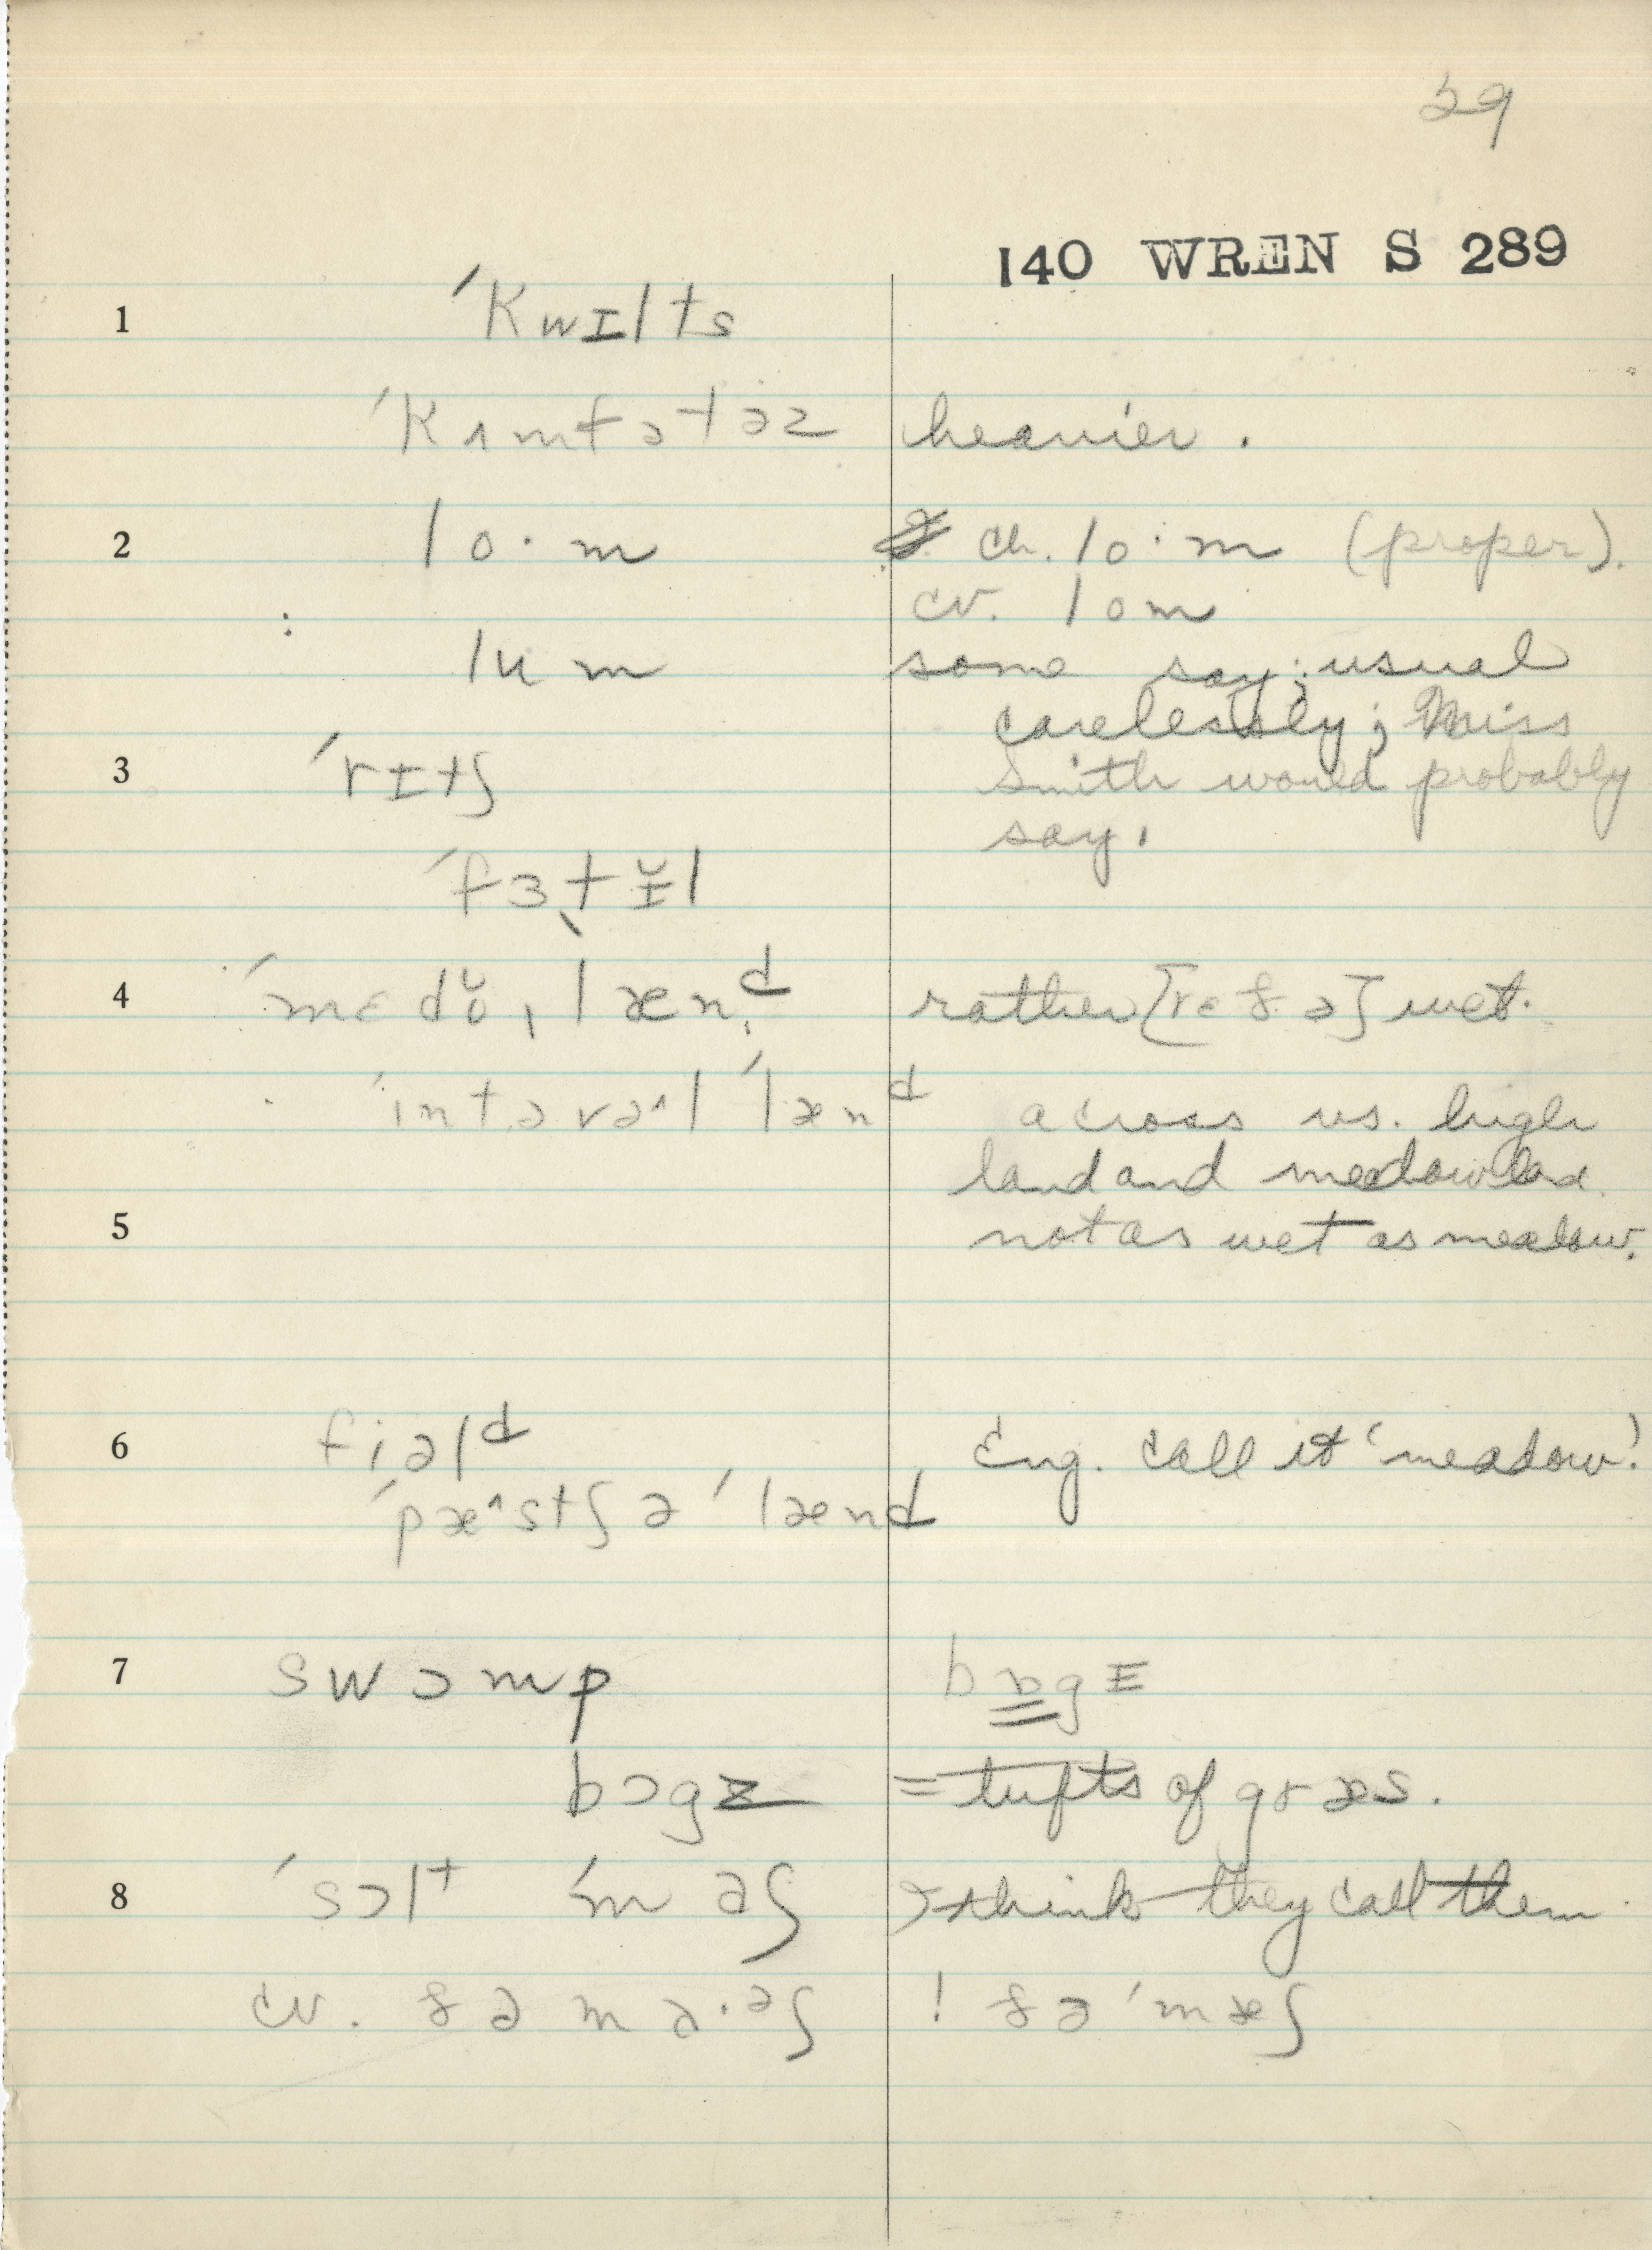 29
140 WREN S 289
1 ˈKwɪlts
ˈKʌmfətəz heavier.
2 lo·m ch. lo·m (proper).
cv. lom
lum some say; usual
carelessly; Miss
3 ˈrɪtʃ Smith would probably
say.
ˈfɜtɪ̆l
4 ˈmɛdŏˌlænᵈ rather [rɛðə] wet.
ˈintəvəl ˈlænᵈ across vs. high
land and meadowland
5 not as wet as meadow.
6 fiəlᵈ Eng. call it 'meadow'!
ˈpæ^stʃə ˈlænd
7 swɔmp bɒgz
bɔgz = tufts of græs.
8 ˈsɔlᵗ ˈmaʃ think they call them
cv. ðə ma·əʃ ! ðə ˈmæʃ